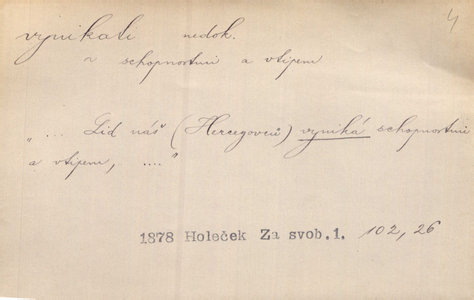 4
vynikati nedok.
v schopnostmi a vtipem
„ ... Lid náš (Hercegovců) vyniká schopnostmi
a vtipem, ...."
1878 Holeček Za svob.1. 102, 26